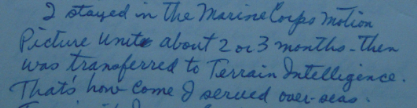 I stayed in the Marine Corps Motion
Picture Unit about 2 or 3 months - then
was transferred to Terrain Intelligence.
That's how come I served over-seas.